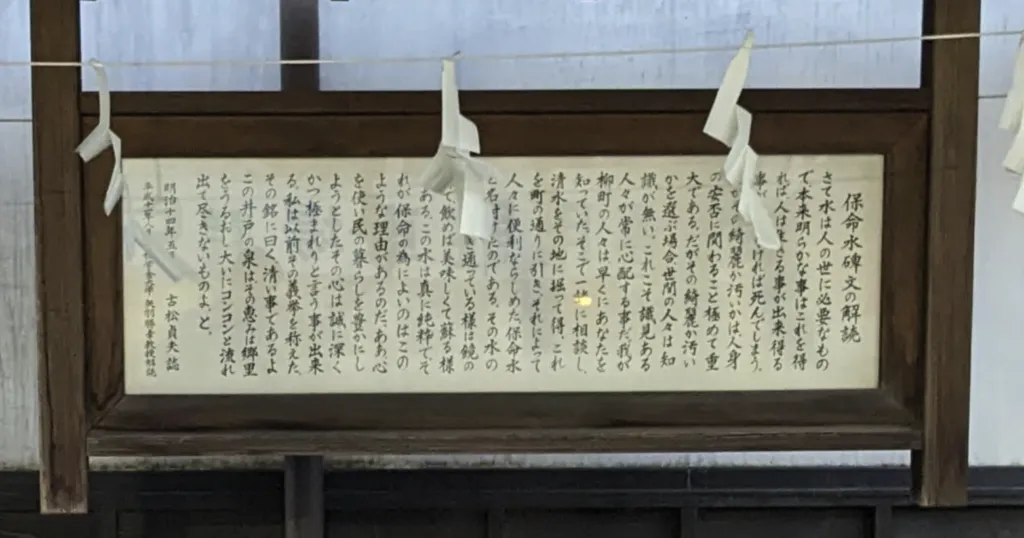 保命水碑文の解読
さて水は人の世に必要なもの
で本来明らかな事はこれを得
れば人は生きる事が出来得る
事が ければ死んでしまう。
の綺麗か汚いかは人身
の安否に関わること極めて重
大である。だがその綺麗か汚い
かを選ぶ場合世間の人々は知
識が無い。これこそ識見ある
人々が常に心配する事だ。我が
柳町の人々は早くにあなたを
知っていた。そこで一緒に相談し、
清水をその地に掘って得、これ
を町の通りに引きそれによって
人々に便利ならしめた。保命水
と名付けたのである。その水の
き通っている様は鏡の
で、飲めば美味しくて蘇る様
ある。この水は真に純粋でそ
れが保命の為によいのはこの
ような理由があるのだ。ああ、心
を使い民の暮らしを豊かにし
ようとしたその心は誠に深く
かつ極まれりと言う事が出来
る。私は以前その義挙を称えた。
その銘に曰く、清い事であるよ
この井戸の泉はその恵みは郷里
をうるおし大いにコンコンと流れ
出て尽きないものよ、と。
明治十四年五 古松貞夫誌
平成 教授